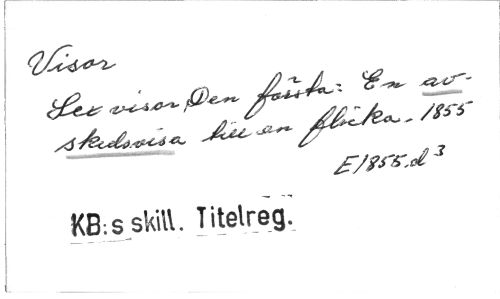 Visor
Sex visor, Den första: En av-
skedsvisa till en flicka. 1855
E1855.d3
KB:s skill. Titelreg.